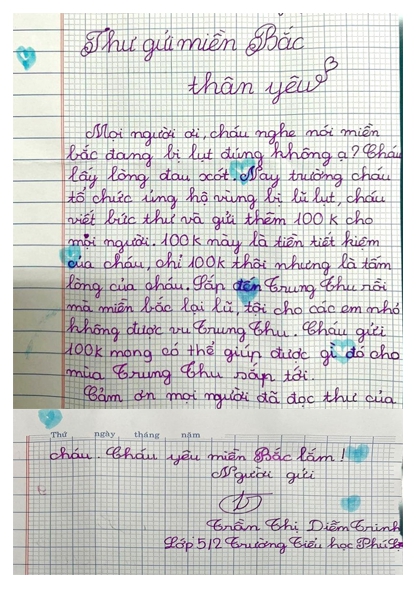 Thư gửi miền Bắc
thân yêu
Mọi người ơi, cháu nghe nói miền
bắc đang bị lụt đúng không ạ? Cháu
lấy lòng đau xót. Nay trường cháu
tổ chức ủng hộ vùng bị lũ lụt, cháu
viết bức thư và gửi thêm 100k cho
mọi người. 100k này là tiền tiết kiệm
của cháu, chỉ 100k thôi nhưng là tấm
lòng của cháu. Sắp đến Trung Thu rồi
mà miền bắc lại lũ, tội cho các em nhỏ
không được vu Trung Thu. Cháu gửi
100k mong có thể giúp được gì đó cho
mùa Trung Thu sắp tới.
Cảm ơn mọi người đã đọc thư của
Thứ ngày tháng năm
cháu. Cháu yêu miền Bắc lắm!
Người gửi
Trần Thị Diễm Trinh
Lớp 5/2 Trường Tiểu học Phú